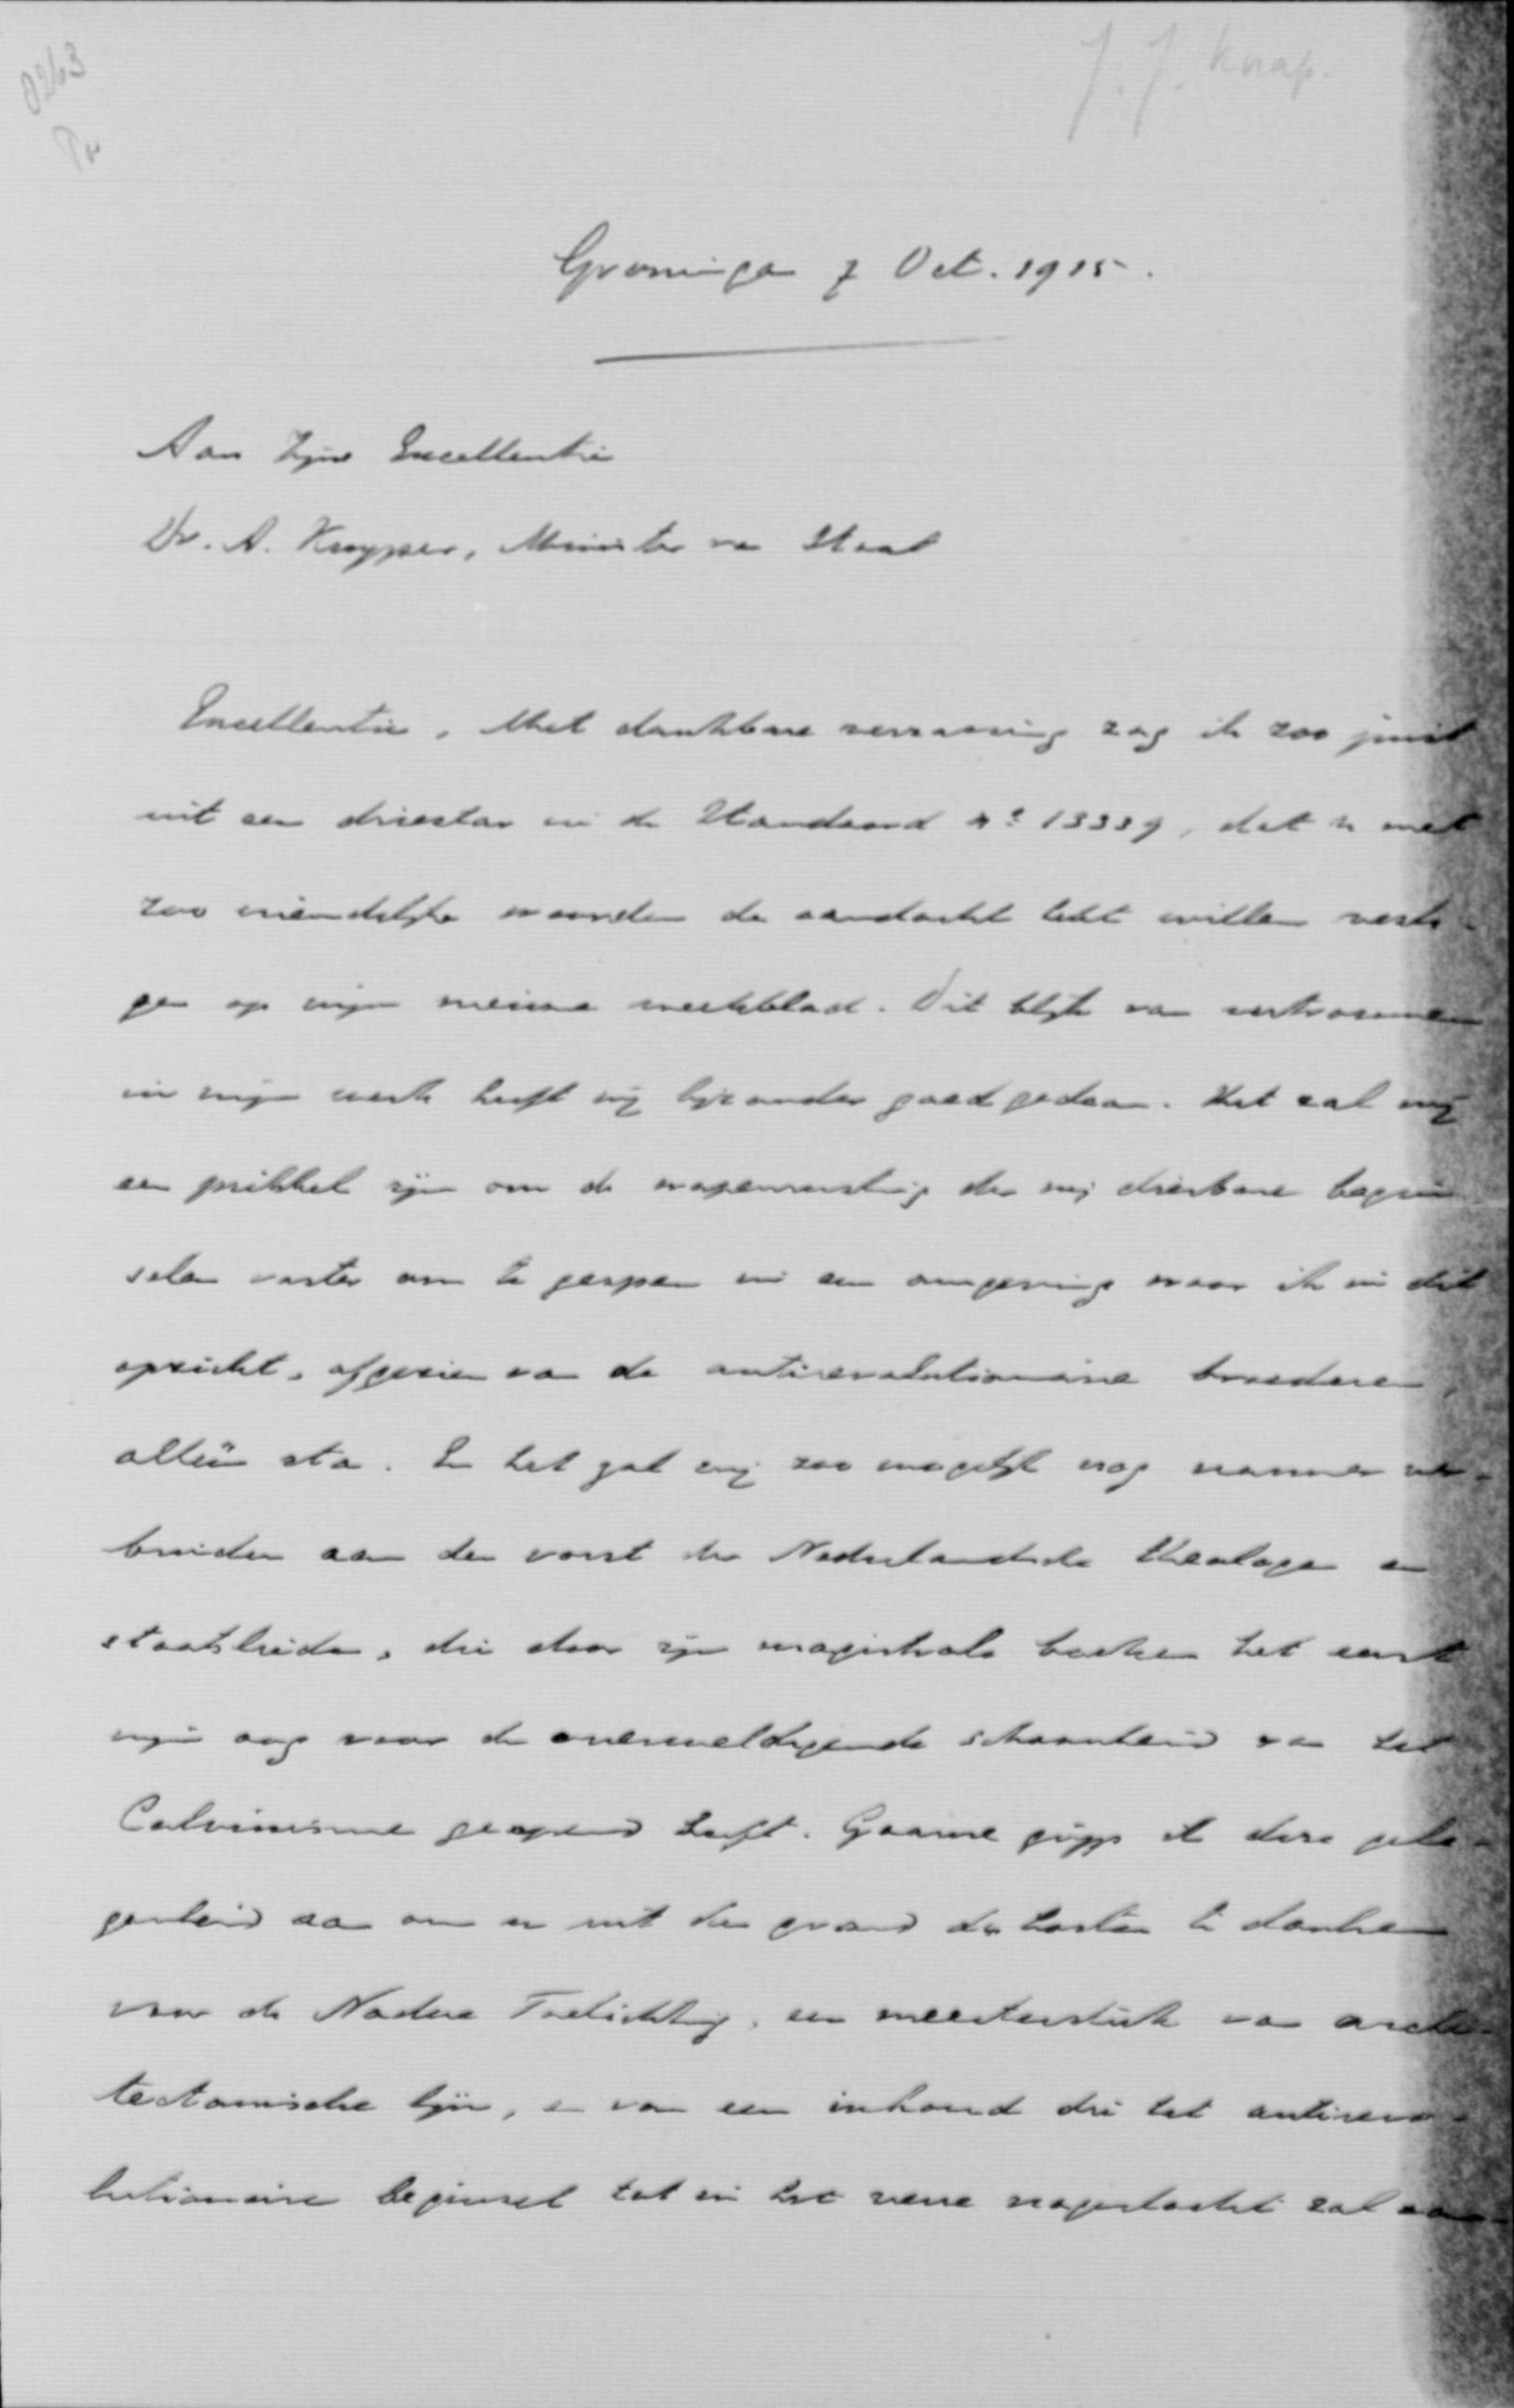 J.J. Knap.
0263
Pr
Groningen 7 Oct. 1915.
Aan Zijne Excellentie
Dr. A. Kuyper, Minister van Staat
Excellentie, Met dankbare verrassing zag ik zoo juist
uit een driestar in de Standaard No 13339, dat u met
zoo vriendelijke woorden de aandacht hebt willen vesti-
gen op mijn nieuwe weekblad. Dit blijk van vertrouwen
in mijn werk heeft mij bijzonder goed gedaan. Het zal mij
een prikkel zijn om de wapenrusting der mij dierbare begin
selen vaster om te gespen in een omgeving waar ik in dit
opzicht, afgezien van de antirevolutionaire broederen,
alleen sta. En het zal mij zoo mogelijk nog nauwer ver-
binden aan den vorst der Nederlandsche theologen en
staatslieden, die door zijn magistrale boeken het eerst
mijn oog voor de overweldigende schoonheid van het
Calvinisme geopend heeft. Gaarne grijp ik deze gele-
genheid aan om u uit den grond des harten te danken
voor de Nadere Toelichting, een meesterstuk van archi-
tectonische lijn, en van een inhoud die het antirevo-
lutionaire beginsel tot in het verre nageslacht zal aan-